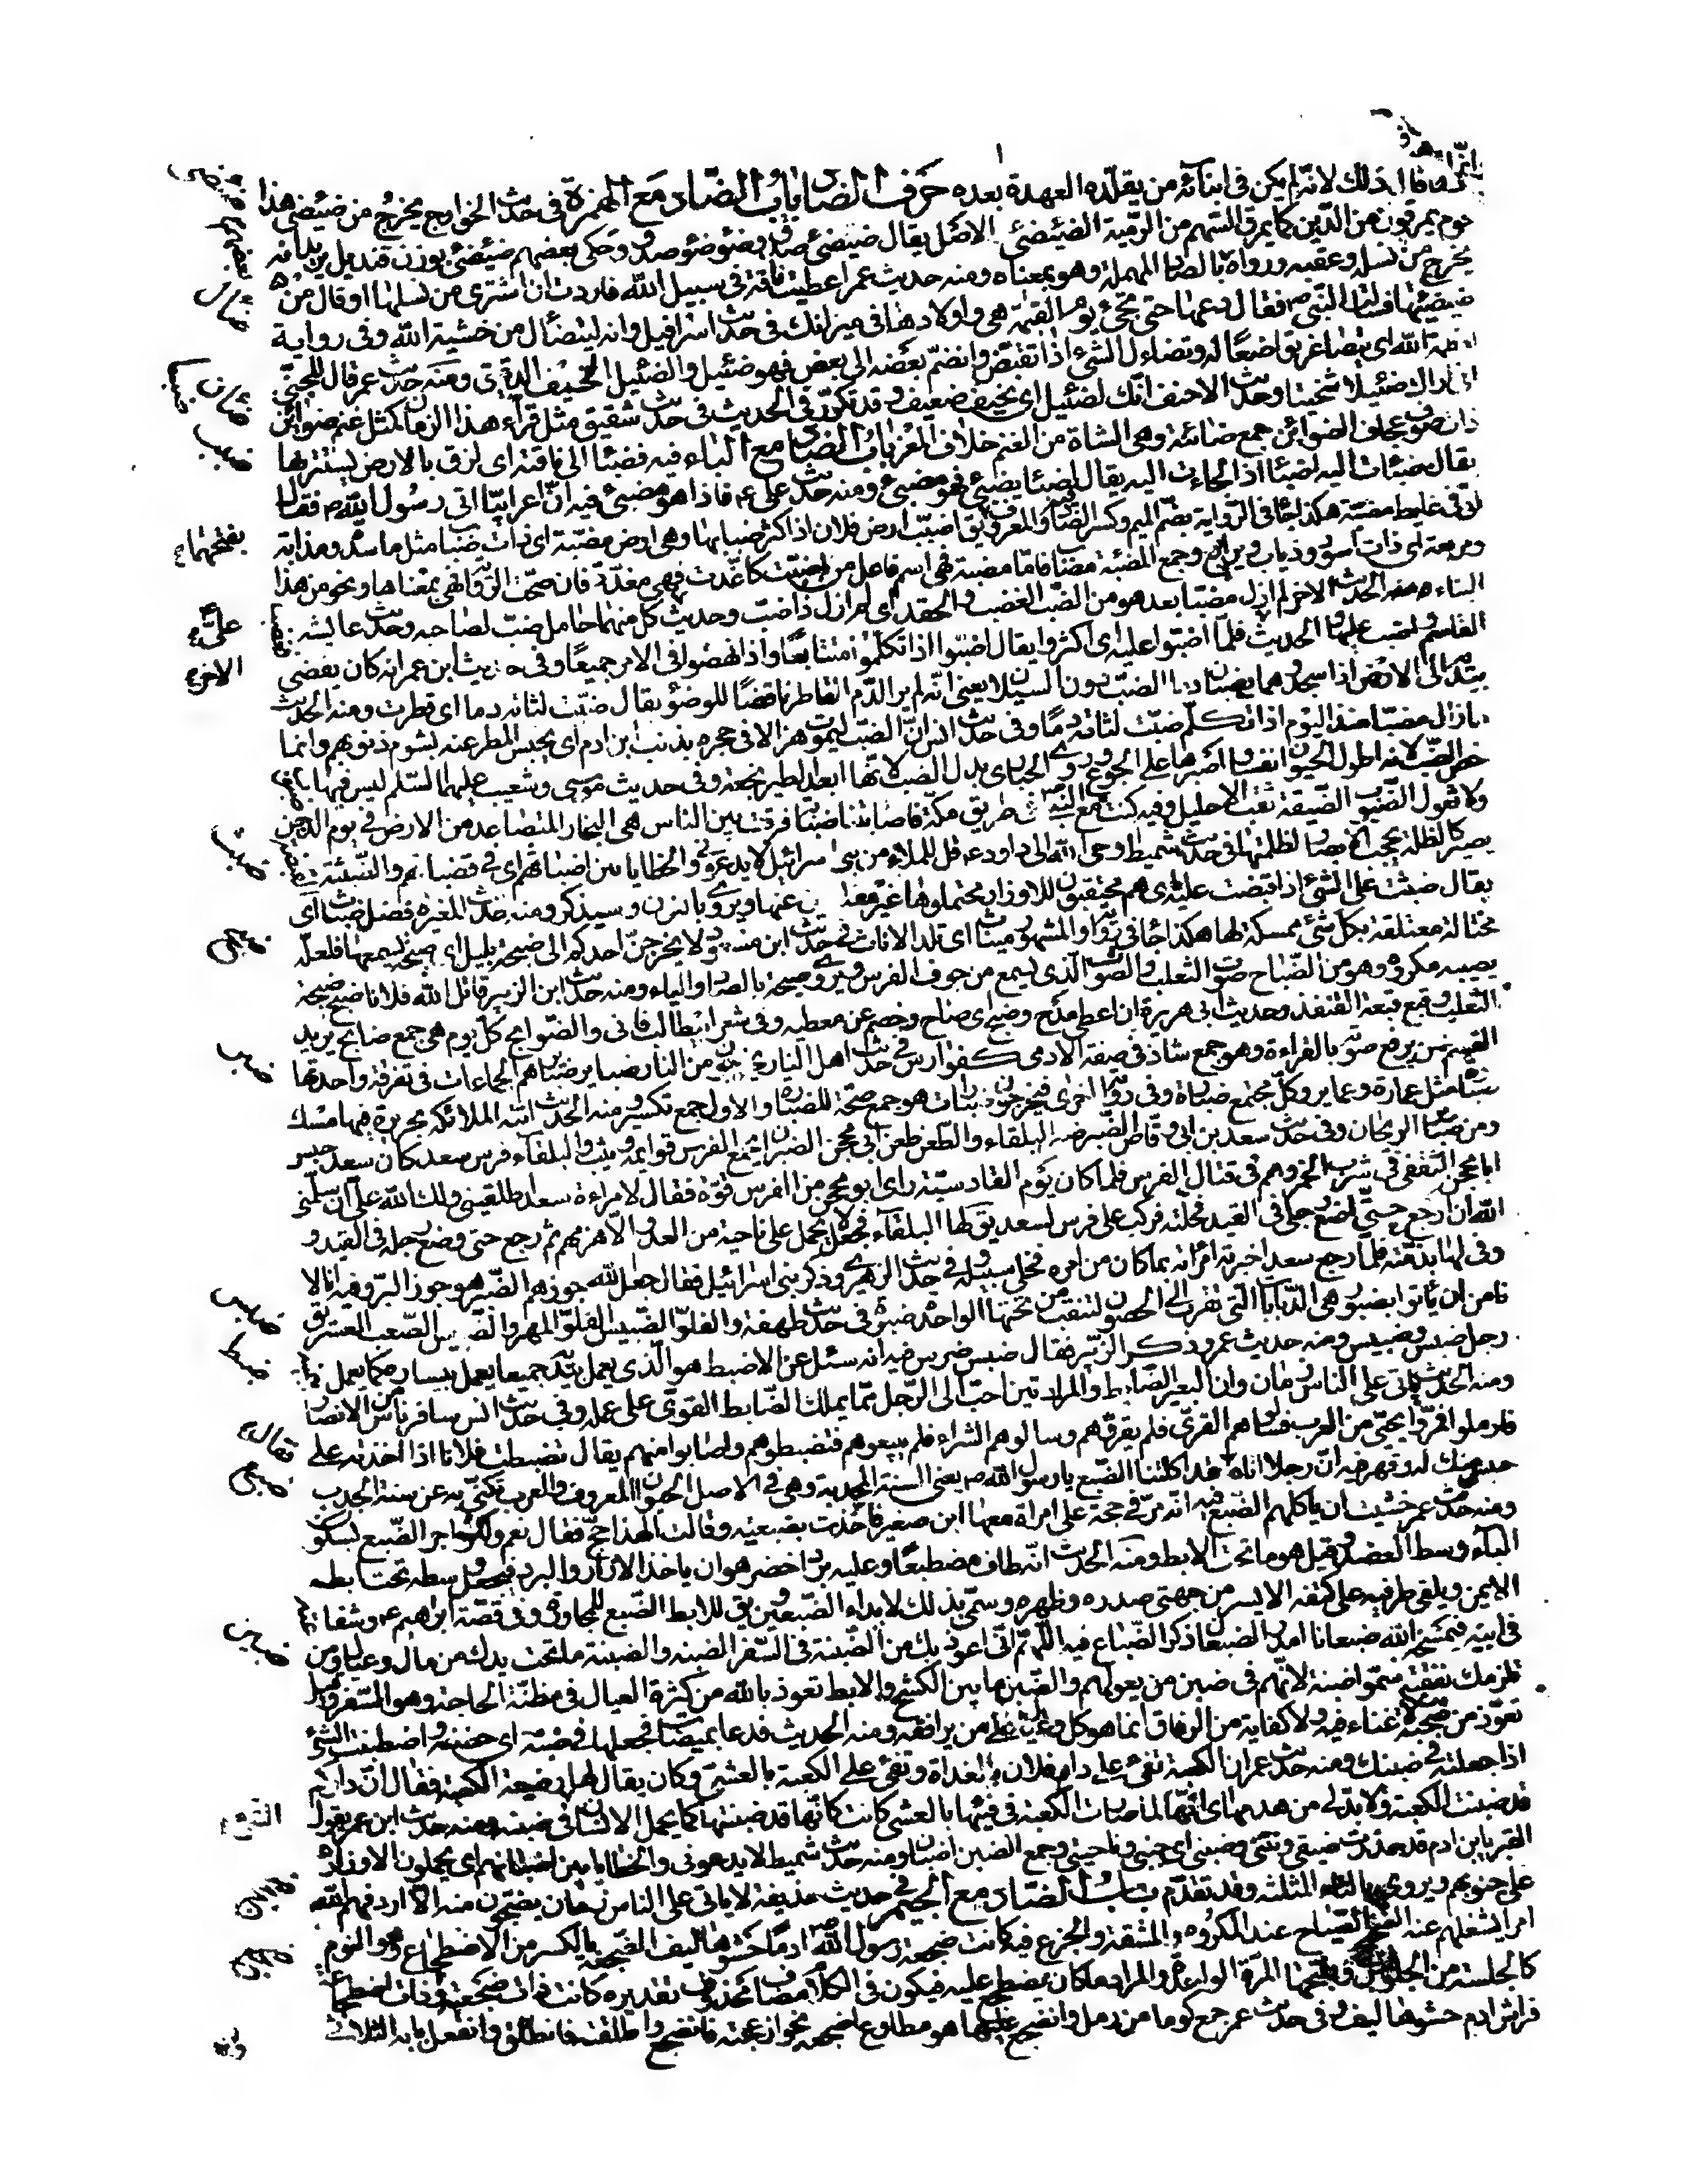 ذلك لانه لم يكن فى ابنائه من يقلده العهدة بعده حرف الضاد باب الضاد مع الهمزة فى حديث الخوارج يخرج من ضئضئ هذا
قوم يمرقون من الدين كما يمرق السهم من الرمية الضئضئ الاصل يقال ضئضئ صدق وضؤضؤ صدق وحكى بعضهم ضئضئ بوزن قنديل يريد انه
يخرج من نسله وعقبه ورواه بالصاد المهملة وهو بمعناه ومنه حديث عمر اعطيت ناقة فى سبيل الله فاردت ان اشترى من نسلها او قال من
ضئضئها فسالت النبى فقال دعها حتى تجئ يوم القيمة هى واولادها فى ميزانك فى حديث اسرافيل وانه ليتضاءل من خشية الله وفى رواية
لعظمة الله اى يتصاغر تواضعا له وتضاءل الشئ اذا تقبض وانضم بعضه الى بعض فهو ضئيل والضئيل النحيف الدقيق ومنه حديث عمر قال للجنى
انى اراك ضئيلا شخيتا وحديث الاحنف انك لضئيل اى نحيف ضعيف وقد تكرر فى الحديث فى حديث شقيق مثل قراء هذا الزمان كمثل غنم ضوائن
ذات صوف عجاف الضوائن جمع ضائنة وهى الشاة من الغنم خلاف المعز باب الضاد مع الباء فيه فضبأ الى ناقته اى لزق بالارض يستتر بها
يقال ضبأت اليه اضبأ اذا لجأت اليه يقال اضبأ يضبئ فهو مضبئ ومنه حديث على فاذا هو مضبئ فيه ان اعرابيا اتى رسول الله فقال
انى فى غايط مضبة هكذا جاء فى الرواية بضم الميم وكسر الضاد والمعروف بفتحهما يق اضبت ارض فلان اذا كثر ضبابها وهى ارض مضبة اى ذات ضباب مثل ماسدة ومذابة
ومربعة اى ذات اسود وذياب ويرابيع وجمع المضبة مضاب فاما مضبة فهى اسم فاعل من اضبت كاغدت فهى مغدة فان صحت الرواية فهى بمعناها ونحو من هذا
البناء ومنه الحديث الاخر لم ازل مضبا بعد هو من الضب الغضب والحقد اى لم ازل ذا ضب وحديث كل منهما حامل ضب لصاحبه وحديث عايشة فغضب
القاسم واضب عليها والحديث فلما اضبوا عليه اى اكثروا يقال اضبوا اذا تكلموا متتابعا واذا نهضوا فى الامر جميعا وفى حديث ابن عمر انه كان يفضى
بيديه الى الارض اذا سجد وهما يضبان دما الضب دون السيلان يعنى انه لم ير الدم القاطر ناقضا للوضوء يقال ضبت لثاته دما اى قطرت ومنه الحديث
مازال مضبا منذ اليوم اذا تكلم ضبت لثاته دما وفى حديث انس ان الضب ليموت هزالا فى جحره بذنب ابن ادم اى يحبس المطر عنه بشوم ذنوبهم وانما
خص الضب لانه اطول الحيوان نفسا واصبرها على الجوع وروى الحبارى بدل الضب لانها ابعد الطير نجعة وفى حديث موسى وشعيب عليهما السلم ليس فيها ضبوب
ولا ثعول الضبوب الضيقة ثقب الاحليل وفيه كنت مع النبى فى طريق مكة فاصابتنا ضبابة فرقت بين الناس هى البخار المتصاعد من الارض فى يوم الدجن
يصير كالظلة تحجب الابصار لظلمتها فى حديث شميط اوحى الله الى داود قل للملاء من بنى اسرائيل لا يدعونى والخطايا بين اضباثهم اى فى قبضاتهم والضبثة القبضة
يقال ضبثت على الشئ اذا قبضت عليه اى هم محتقبون للاوزار محتملوها غير مقلعين عنها ويروى بالنون وسيذكر ومنه حديث المغيرة فضل ضباث اى
مختالة معتلقة بكل شئ ممسكة لها هكذا جاء فى رواية والمشهور ميناث اى تلد الاناث فى حديث ابن مسعود لا يخرجن احدكم الى ضبحة بليل اى صيحة يسمعها فلعله
يصيبه مكروه وهو من الضباح صوت الثعلب والصوت الذى يسمع من جوف الفرس ويروى صيحة بالصاد والياء ومنه حديث ابن الزبير قاتل الله فلانا ضبح ضبحة
الثعلب وقبع قبعة القنفذ وحديث ابى هريرة ان اعطى مدح وضبح اى صاح وخاصم عن معطيه وفى شعر ابيطالب فانى والضوابح كل يوم هى جمع ضابح يريد
القسم بمن يرفع صوته بالقراءة وهو جمع شاذ فى صفة الادمى كفوارس فى حديث اهل النار يخرجون من النار ضباير ضباير هم الجماعات فى تفرقة واحدتها
ضبارة مثل عمارة وعماير وكل مجتمع ضبارة وفى رواية اخرى فيخرجون ضبارات هو جمع صحة للضبارة والاول جمع تكسير ومنه الحديث اتته الملائكة بحريرة فيها مسك
ومن ضباير الريحان وفى حديث سعد بن ابى وقاص الضبر ضبر البلقاء والطعن طعن ابى محجن الضبر ان يجمع الفرس قوائمه ويثب والبلقاء فرس سعد كان سعد حبس
ابا محجن الثقفى فى شرب الخمر وهم فى قتال الفرس فلما كان يوم القادسية راى ابو محجن من الفرس قوة فقال لامراءة سعد اطلقينى ولك الله على ان سلمنى
الله ان ارجع حتى اضع رجلى فى القيد فحلته فركب على فرس لسعد يق لها البلقاء فجعل لا يحمل على ناحية من العدو الا هزمهم ثم رجع حتى وضع رجله فى القيد و
وفى لها بذمته فلما رجع سعد اخبرته امراته بما كان من امره فخلى سبيله وفى حديث الزهرى وذكر بنى اسرائيل فقال جعل الله جوزهم الضبر هو جوز البر وفيه انا لا
نامن ان ياتوا بضبور هى الدبابات التى تقرب الى الحصون لتنقب من تحتها الواحد ضبر فى حديث طهفة والفلو الضبيس الفلو المهر والضبيس الصعب العسر يق
رجل ضبس وضبيس ومنه حديث عمر وذكر الزبير فقال ضبس ضرس فيه انه سئل عن الاضبط هو الذى يعمل بيديه جميعا يعمل بيساره كما يعمل بيمينه
ومنه الحديث ياتى على الناس زمان وان البعير الضابط والمزادتين احب الى الرجل مما يملك الضابط القوى على عمله وفى حديث انس سافر ناس من الانصار
فارملوا فمروا بحى من العرب فسالوهم القرى فلم يقروهم وسالوهم الشراء فلم يبيعوهم فتضبطوهم واصابوا منهم يقال تضبطت فلانا اذا اخذته على
حبس منك له وقهر فيه ان رجلا اتاه فقال قد اكلتنا الضبع يارسول الله يعنى السنة المجدبة وهى فى الاصل الحيوان المعروف والعرب تكنى به عن سنة الجدب
ومنه حديث عمر خشيت ان ياكلهم الضبع فيه انه مر فى حجه على امراة معها ابن صغير فاخذت بضبعيه وقالت الهذا حج فقال نعم ولك اجر الضبع بسكون
الباء وسط العضد وقيل هو ما تحت الابط ومنه الحديث انه طاف مضطبعا وعليه برد اخضر هو ان ياخذ الازار او البرد فيجعل وسطه تحت ابطه
الايمن ويلقى طرفيه على كتفه الايسر من جهتى صدره وظهره وسمى بذلك لابداء الضبعين يق للابط الضبع للمجاورة وفى قصة ابراهيم وشفاعته
فى ابيه فيمسخه الله ضبعانا امدر الضبعان ذكر الضباع فيه اللهم انى اعوذ بك من الضبنة فى السفر الضبنة والضبنة ما تحت يدك من مال وعيال ومن
تلزمك نفقته سموا ضبنة لانهم فى ضبن من يعولهم والضبن ما بين الكشح والابط تعوذ بالله من كثرة العيال فى مظنة الحاجة وهو السفر وقيل
تعوذ من صحبة من لا غناء فيه ولا كفاية من الرفاق انما هو كل وعيال على من يرافقه ومنه الحديث فدعا بميضاة فجعلها فى ضبنه اى حضنه واضطبنت الشئ
اذا جعلته فى ضبنك ومنه حديث عمر ان الكعبة تفئ على دار فلان بالغداة وتفئ على الكعبة بالعشى وكان يقال لها رضيعة الكعبة فقال ان داركم
قد ضبنت الكعبة ولا بد لى من هدمها اى انها لما صارت الكعبة فى فيئها بالعشى كانت كانها قد ضبنتها كما يحمل الانسان الشئ فى ضبنه ومنه حديث ابن عمر يقول
القبر يابن ادم قد حذرت ضيقى ونتنى وضبنى اى جنبى وناحيتى وجمع الضبن اضبان ومنه حديث شميط لا يدعونى والخطايا بين اضبانهم اى يحملون الاوزار
على جنوبهم ويروى بالثاء المثلثة وقد تقدم باب الضاد مع الجيم فى حديث حذيفة لا ياتى على الناس زمان يضجون منه الا اردفهم الله
امرا يشغلهم عنه الضجيج الصياح عند المكروه والمشقة والجزع فيه كانت ضجعة رسول الله ادما حشوها ليف الضجعة بالكسر من الاضطجاع وهو النوم
كالجلسة من الجلوس وبفتحها المرة الواحدة والمراد ما كان يضطجع عليه فيكون فى الكلام مضاف محذوف تقديره كانت ذات ضجعته او ذات اضطجاعه
فراش ادم حشوها ليف وفى حديث عمر جمع كومة من رمل وانضجع عليها هو مطاوع اضجعه نحو ازعجته فانزعج واطلقته فانطلق وانفعل بابه الثلاثى